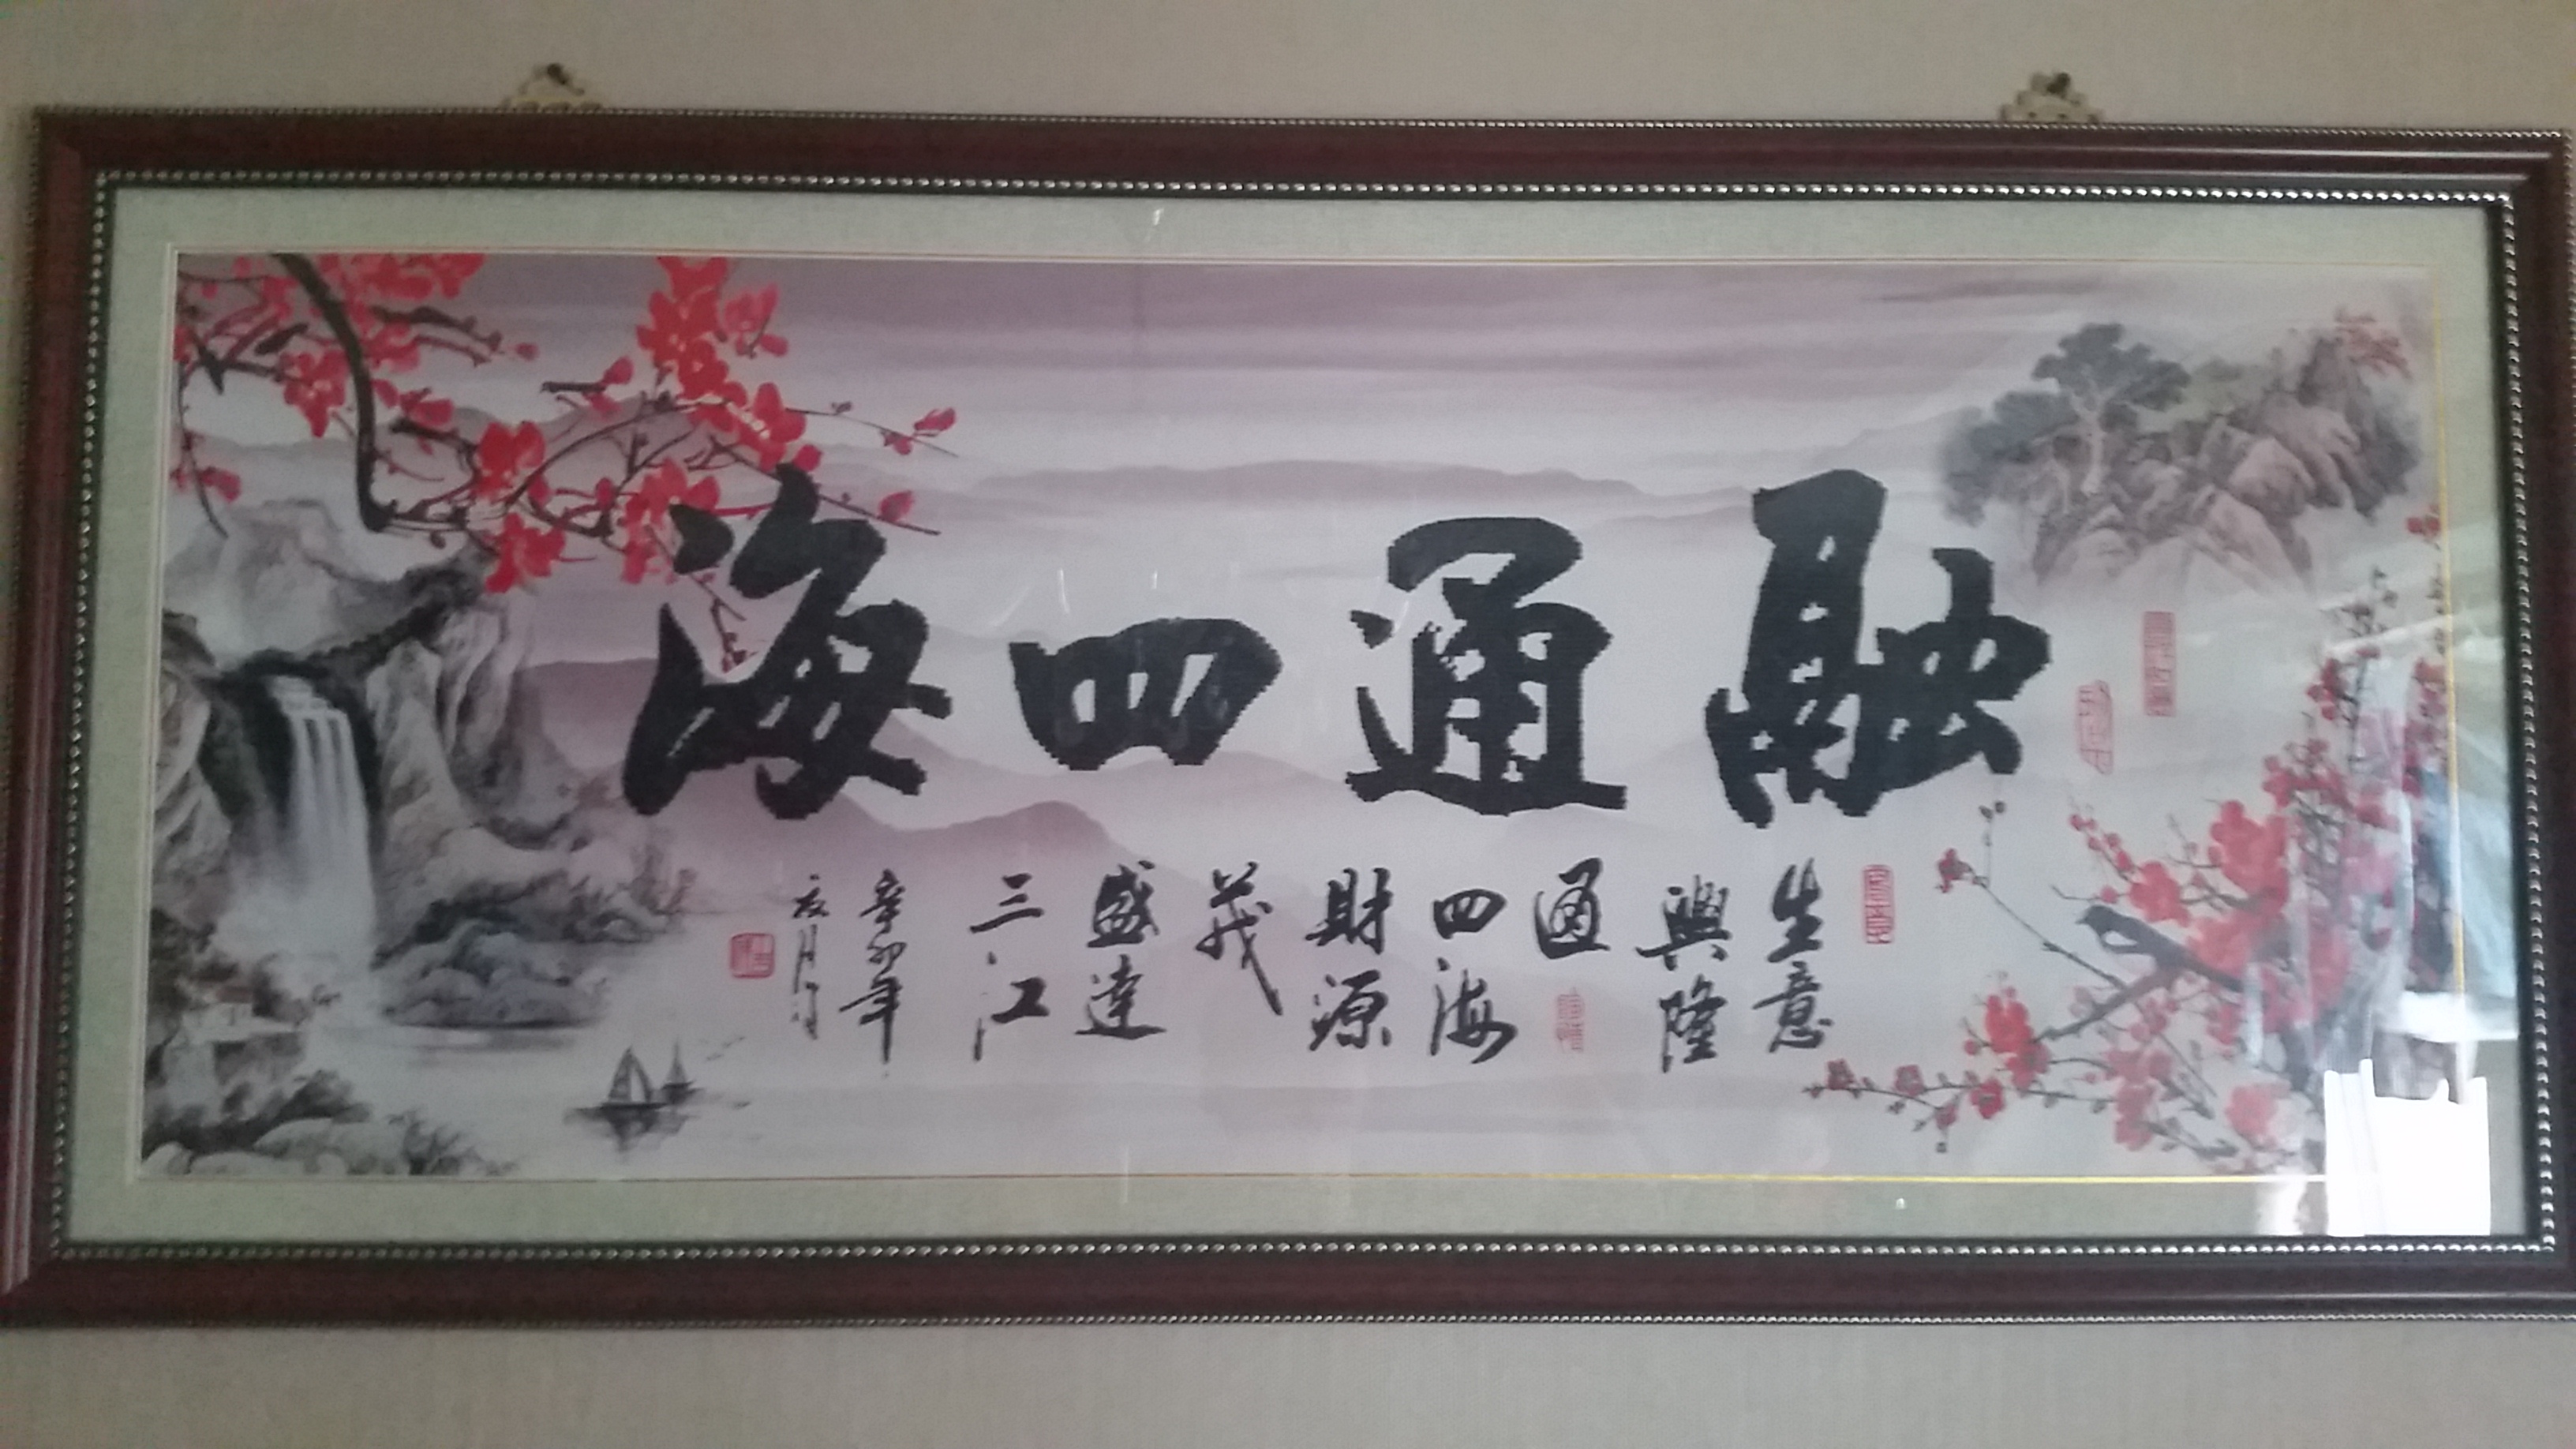 融通四海
生意
興隆
通
四海
財源
茂
盛達
三江
辛卯年